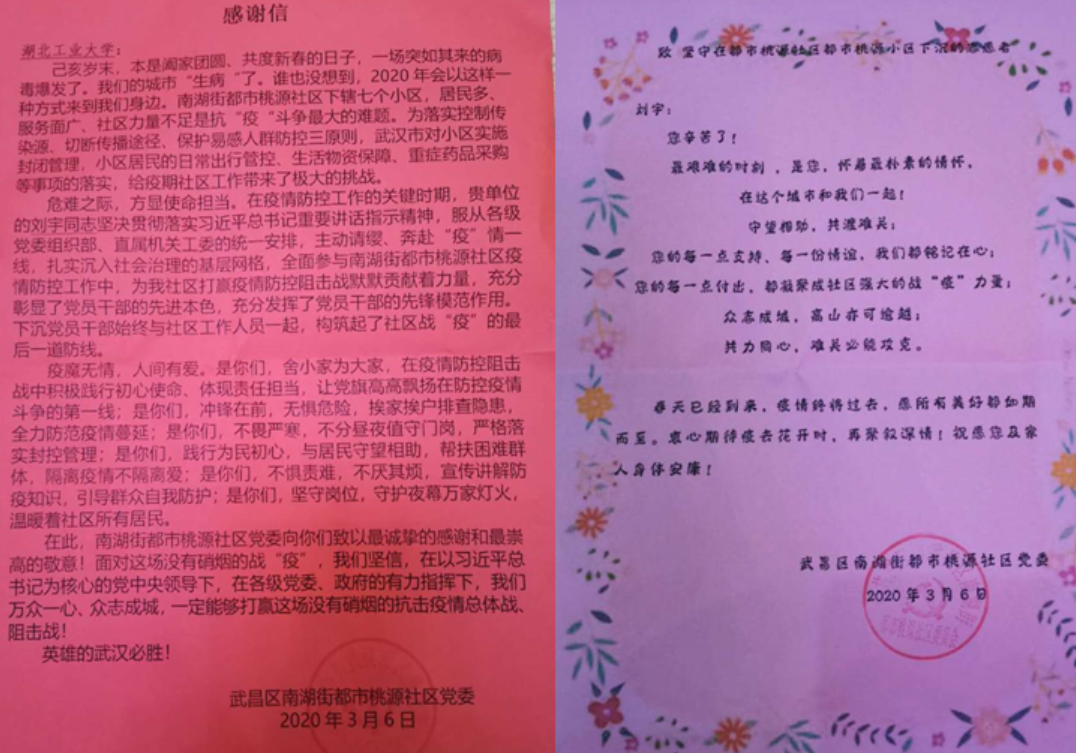 感谢信
湖北工业大学：
己亥岁末，本是阖家团圆、共度新春的日子，一场突如其来的病
毒爆发了。我们的城市“生病“了。谁也没想到，2020年会以这样一
种方式来到我们身边。南湖街都市桃源社区下辖七个小区，居民多、
服务面广、社区力量不足是抗“疫“斗争最大的难题。为落实控制传
染源、切断传播途径、保护易感人群防控三原则，武汉市对小区实施
封闭管理，小区居民的日常出行管控、生活物资保障、重症药品采购
等事项的落实，给疫期社区工作带来了极大的挑战。
危难之际，方显使命担当。在疫情防控工作的关键时期，贵单位
的刘宇同志坚决贯彻落实习近平总书记重要讲话指示精神，服从各级
党委组织部、直属机关工委的统一安排，主动请缨、奔赴“疫”情一
线，扎实沉入社会治理的基层网格，全面参与南湖街都市桃源社区疫
情防控工作中，为我社区打赢疫情防控阻击战默默贡献着力量，充分
彰显了党员干部的先进本色，充分发挥了党员干部的先锋模范作用。
下沉党员干部始终与社区工作人员一起，构筑起了社区战“疫”的最
后一道防线。
疫魔无情，人间有爱。是你们，舍小家为大家，在疫情防控阻击
战中积极践行初心使命、体现责任担当，让党旗高高飘扬在防控疫情
斗争的第一线；是你们，冲锋在前，无惧危险，挨家挨户排查隐患，
全力防范疫情蔓延；是你们，不畏严寒，不分昼夜值守门岗，严格落
实封控管理；是你们，践行为民初心，与居民守望相助，帮扶困难群
体，隔离疫情不隔离爱；是你们，不惧责难，不厌其烦，宣传讲解防
疫知识，引导群众自我防护；是你们，坚守岗位，守护夜幕万家灯火，
温暖着社区所有居民。
在此，南湖街都市桃源社区党委向你们致以最诚挚的感谢和最崇
高的敬意！面对这场没有硝烟的战“疫”，我们坚信，在以习近平总
书记为核心的党中央领导下，在各级党委、政府的有力指挥下，我们
万众一心、众志成城，一定能够打赢这场没有硝烟的抗击疫情总体战、
阻击战！
英雄的武汉必胜！
武昌区南湖街都市桃源社区党委
2020年3月6日
致 坚守在都市桃源社区都市桃源小区下沉的志愿者
刘宇：
您辛苦了！
最艰难的时刻，是您，怀着最朴素的情怀，
在这个城市和我们一起！
守望相助，共渡难关；
您的每一点支持、每一份情谊，我们都铭记在心；
您的每一点付出，都凝聚成社区强大的战“疫”力量；
众志成城，高山亦可逾越；
共力同心，难关必能攻克。
春天已经到来，疫情终将过去，愿所有美好都如期
而至。衷心期待疫去花开时，再聚叙深情！祝愿您及家
人身体安康！
武昌区南湖街都市桃源社区党委
2020年3月6日